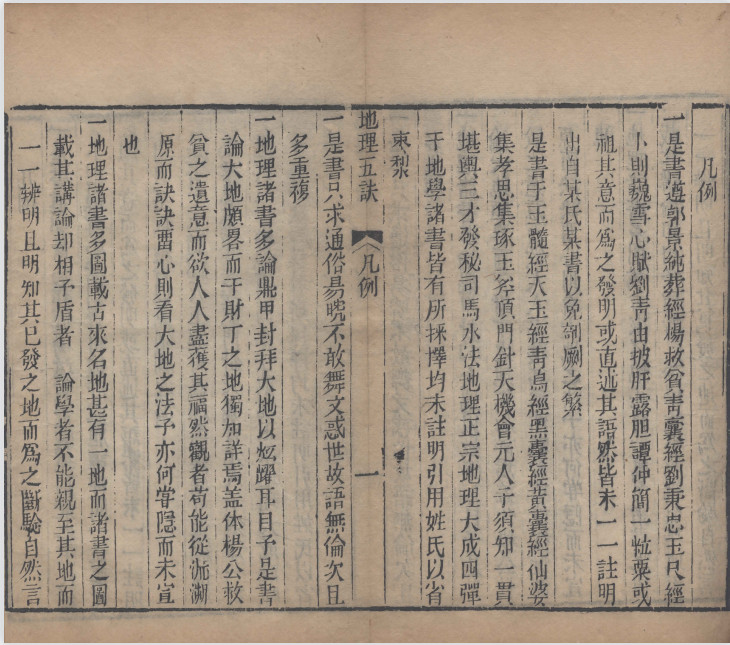 凡例
一是書遵郭景純葬經楊救貧青囊經劉秉忠玉尺經
卜則巍雪心賦劉青田披肝露胆譚仲簡一粒粟或
祖其意而爲之發明或直述其語然皆未一一註明
出自某氏某書以免剞劂之繁
是書于玉髓經天玉經青烏經黑囊經黃囊經仙婆
集孝思集琢玉斧頂門針天機會元人子須知一貫
堪輿三才發秘司馬水法地理正宗地理大成四彈
子地學諸書皆有所採擇均未註明引用姓氏以省
棗梨
地理五訣 凡例 一
一是書只求通俗易曉不敢舞文惑世故語無倫次且
多重複
一地理諸書多論鼎甲封拜大地以炫耀耳目予是書
論大地頗畧而于財丁之地獨加詳焉盖体楊公救
貧之遺意而欲人人盡獲其福然觀者苟能從流溯
原而訣訣留心則看大地之法予亦何嘗隱而未宣
也
一地理諸書多圖載古來名地甚有一地而諸書之圖
載其講論却相予盾者 論學者不能親至其地而
一一辨明且明知其已發之地而爲之斷驗自然言